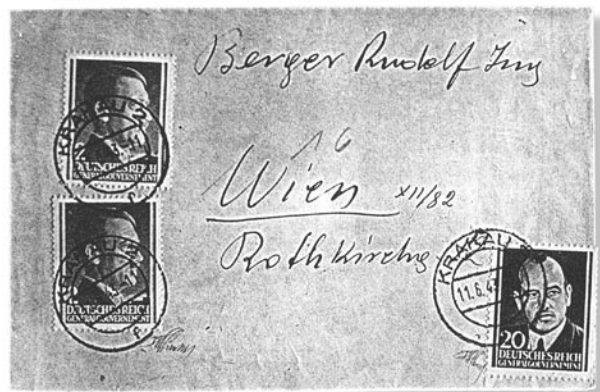 Berger Rudolf Ing
16
Wien XII/82
Rothkirchg
KRAKAU 2
DEUTSCHES REICH
GENERALGOUVERNEMENT
KRAKAU 2
DEUTSCHES REICH
GENERALGOUVERNEMENT
KRAKAU 2
11.6.4
20
DEUTSCHES REICH
GENERALGOUVERNEMENT